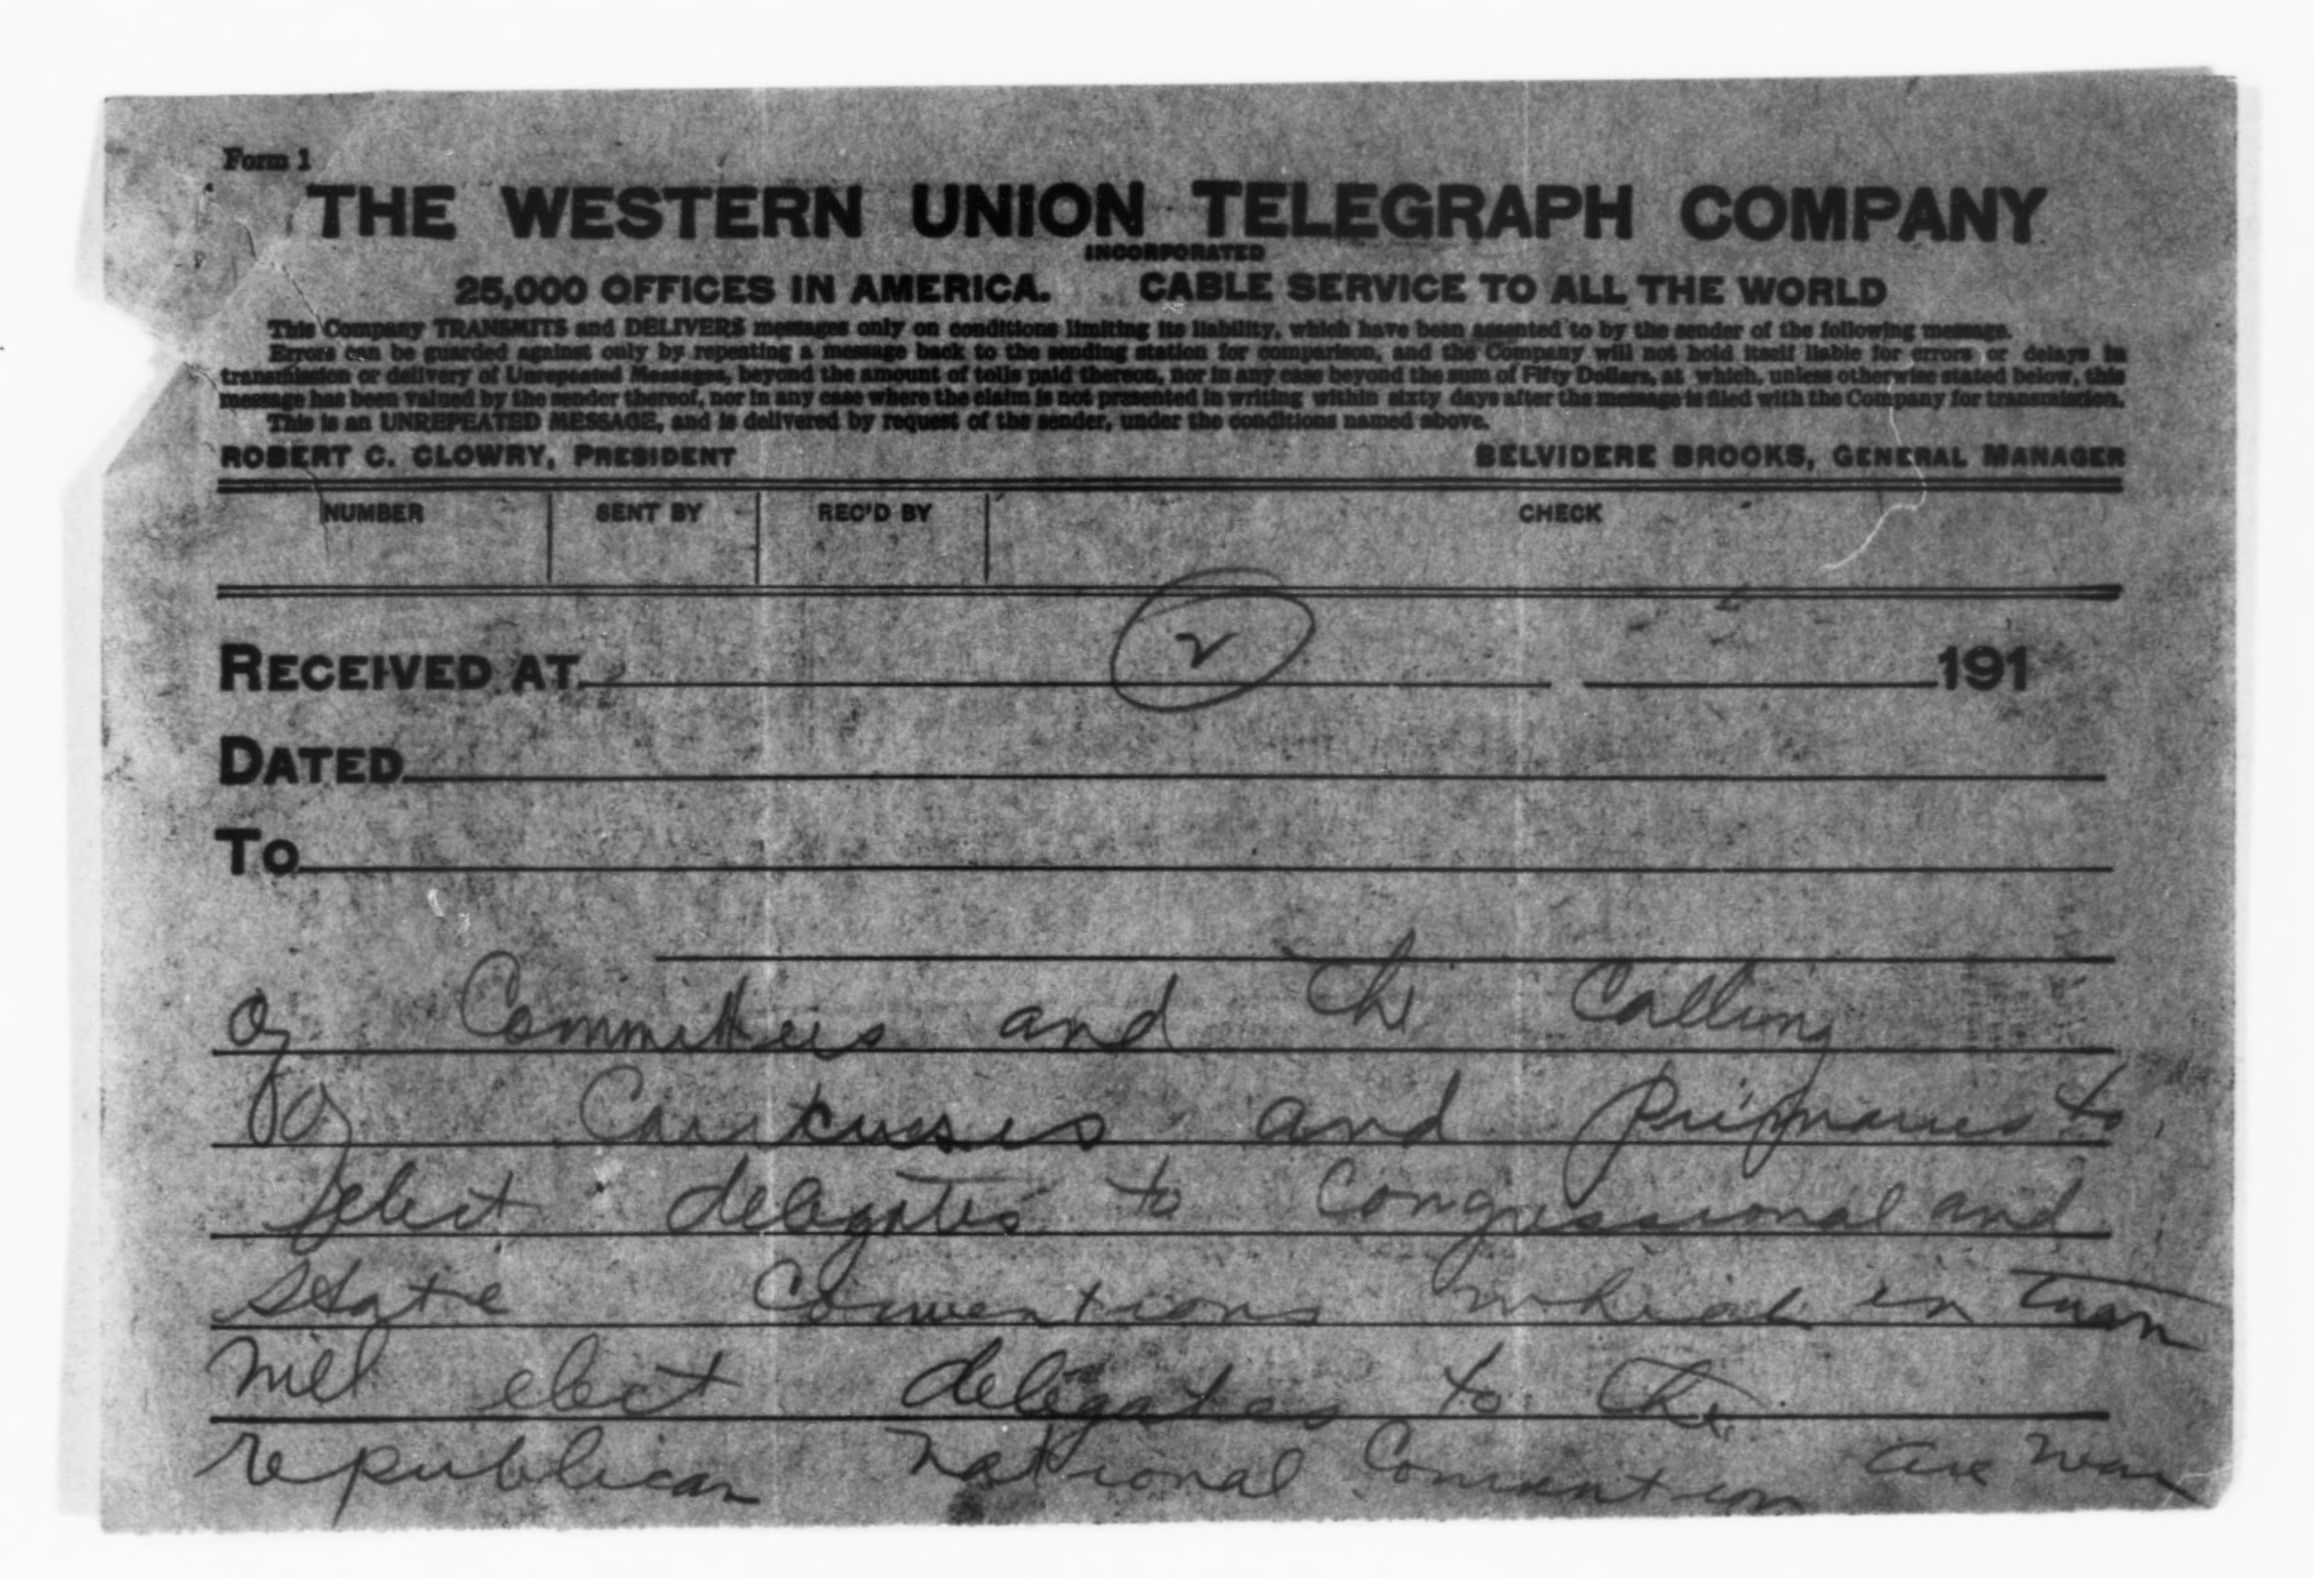 Form 1
THE WESTERN UNION TELEGRAPH COMPANY
INCORPORATED
25,000 OFFICES IN AMERICA. CABLE SERVICE TO ALL THE WORLD
This Company TRANSMITS and DELIVERS messages only on conditions limiting its liability, which have been assented to by the sender of the following message.
Errors can be guarded against only by repeating a message back to the sending station for comparison, and the Company will not hold itself liable for errors or delays in
transmission or delivery of Unrepeated Messages, beyond the amount of tolls paid thereon, nor in any case beyond the sum of Fifty Dollars, at which, unless otherwise stated below, this
message has been valued by the sender thereof, nor in any case where the claim is not presented in writing within sixty days after the message is filed with the Company for transmission.
This is an UNREPEATED MESSAGE, and is delivered by request of the sender, under the conditions named above.
ROBERT C. CLOWRY, PRESIDENT BELVIDERE BROOKS, GENERAL MANAGER
NUMBER SENT BY REC'D BY CHECK
2
RECEIVED AT 191
DATED
TO
of Committees and the Calling
of Caucusses and primaries to
select delegates to Congressional and
state Conventions which in turn
will elect delegates to the
republican national Convention are near